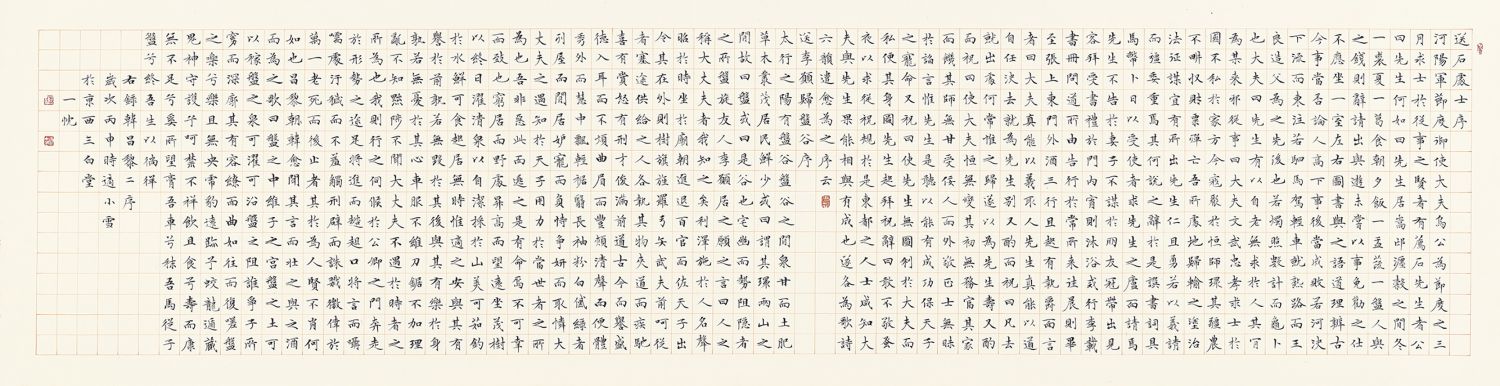 送石處士序
河陽軍節度御使大夫烏公為節度之三
月求士於從事之賢者有薦石先生者公
曰先生何如曰先生居嵩邙瀍穀之間冬
一裘夏一葛食朝夕飯一盂蔬一盤人與
之錢則辭請出與遊未嘗以事免勸之仕
不應坐一室左右圖書與之語道理辨古
今事當否論人高下事後當成敗若河決
下流而東注若駟馬駕輕車就熟路而王
良造父為之先後也若燭照數計而龜卜
也大夫曰先生有以自老無求於人其肯
為某來邪從事曰大夫文武忠孝求士於
國不私於家方今寇聚於恒師環其疆農
不畊收財粟殫亡吾所處地歸輸之塗治
法征謀宜有所出先生仁且勇若以義請
而彊委重焉其何說之辭於是譔書詞具
馬幣卜日以受使者求先生之廬而請焉
先生不告於妻子不謀於朋友冠帶出見
客拜受書禮於門內宵則沐浴戒行李載
書冊問道所由告行於常所來往晨則畢
至張上東門外酒三行且起有執爵而言
者曰大夫真能以義取人先生真能以道
自任決去就為先生別又酌而祝曰凡去
就出處何常惟義之歸遂以為先生壽又酌
而祝曰使大夫恒無變其初無務富其家
而饑其師無甘受佞人而外敬正士無昧
於諂言惟先生是聽以能有成功保天子
之寵命又祝曰使先生無圖利於大夫而
私便其身圖先生起拜祝辭曰敢不敬蚤
夜以求從祝規於是東都之人士咸知大
夫與先生果能相與有成也遂各為歌詩
六韻遣愈為之序云
送李愿歸盤谷序
太行之陽有盤谷盤谷之間泉甘而土肥
草木藂茂居民鮮少或曰謂其環兩山之
間故曰盤或曰是谷也宅幽而勢阻隱者
之所盤旋友人李愿居之愿之言曰人之
稱大丈夫者我知之矣利澤施於人名聲
昭於時坐於廟朝進退百官而佐天子出
令其在外則樹旗旄羅弓矢武夫前呵從
者塞途供給之人各執其物夾道而疾馳
喜有賞怒有刑才俊滿前道古今而譽盛
德入耳而不煩曲眉豐頰清聲而便體
秀外而惠中飄輕裾翳長袖粉白黛綠者
列屋而閒居妒寵而負恃爭妍而取憐大
丈夫之遇知於天子用力於當世者之所
為也吾非惡此而逃之是有命焉不可幸
而致也窮居而野處昇高而望遠坐茂樹
以終日濯清泉以自潔採於山美可茹釣
於水鮮可食起居無時惟適之安與其有
譽於前孰若無毀於其後與其有樂於身
孰若無憂於其心車服不維刀鋸不加理
亂不知黜陟不聞大丈夫不遇於時者之
所為也我則行之伺候於公卿之門奔走
於形勢之途足將進而趑趄口將言而囁
嚅處汙穢而不羞觸刑辟而誅戮徼倖於
萬一老死而後止者其於為人賢不肖何
如也昌黎韓愈聞其言而壯之與之酒
而為之歌曰盤之中維子之宮盤之土可
以稼盤之泉可濯可沿盤之阻誰爭子所
窮而深廓其有容繚而曲如往而復嗟盤
之樂兮樂且無央虎豹遠跡兮蛟龍遁藏
鬼神守護兮呵禁不祥飲且食兮壽而康
無不足兮奚所望膏吾車兮秣吾馬從子
盤兮終吾生以徜徉
右錄韓昌黎二序
歲次丙申時適小雪
於京西三白堂
一忱